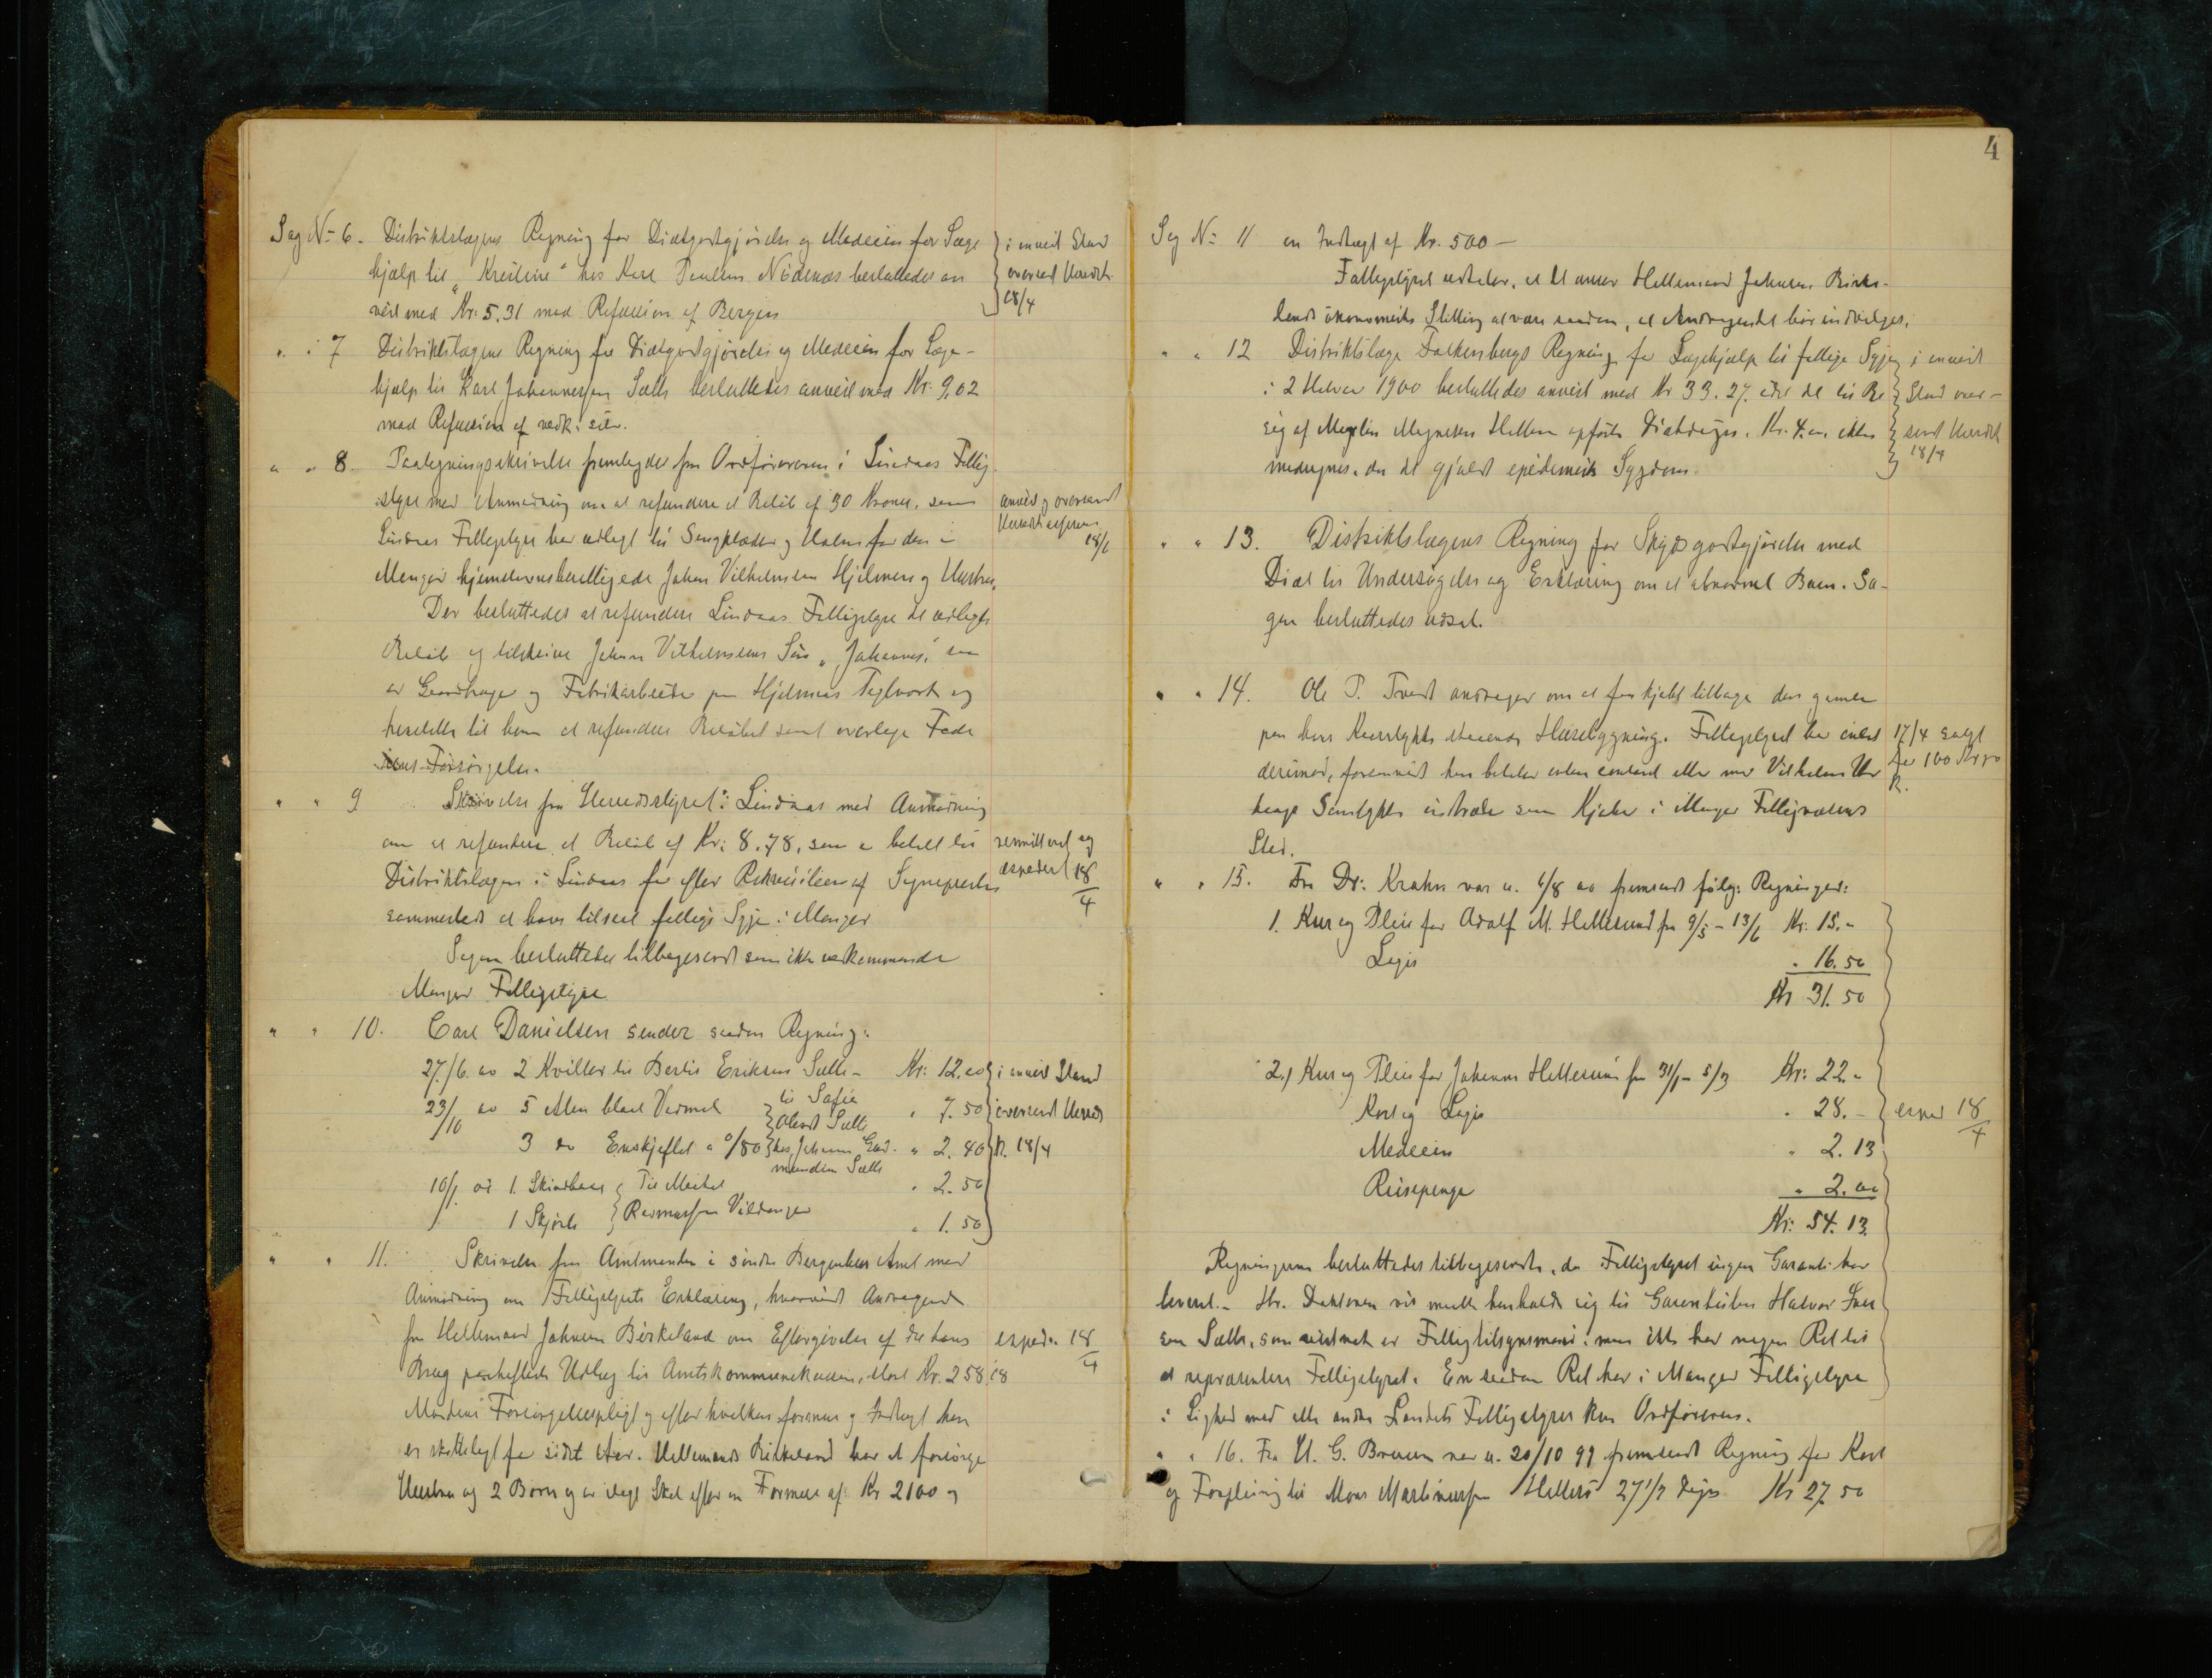 Sag No 6. Distriktslægens Regning for Diætgodtgjørelse og Medecin for Læge
hjælp til "Kristine" hos Karl Paulsen Nødenæs besluttedes an
vist med Kr. 5.31 med Refusion af Bergen
i anvist Stand
oversendt Herredsk.
18/4
" " 7 Distriktslægens Regning for Diætgodtgjørelse og Medecin for Læge-
hjælp til Karl Johannessen Sætle besluttedes anvist med Kr. 9,02
med Refusion af vedk.
" " 8. Paategningsskrivelse fremlagdes fra Ordføreren i Lindaas Fattig
styre med Anmodning om at refundere et Beløb af 30 Kroner, som
Lindaas Fattigstyre har udlagt til Sengklæder og Halm for den i
Manger hjemstavnsberettigede Johan Vilhelmsen Hjelmaas og Hustru.
anvist og oversendt
Herredskassereren
18/4
Der besluttedes at refundere Lindaas Fattigstyre det udlagte
Beløb og tilskrive Johan Vilhelmsens Søn "Johannes," som
er Gaardbruger og Fabrikarbeider paa Hjelmaas Teglverk og
henstille til ham at refundere Beløbet samt overtage Fade
rens Forsørgelse.
" " 9 Skrivelse fra Herredsstyret i Lindaas med Anmodning
om at refundere et Beløb af Kr. 8.78, som er betalt til
Distriktslægen i Lindaas for efter Rekvisition af Sognepresten
sammesteds at have tilseet fattige Syge i Manger
remitteret og
exspedert 18/4
Sagen besluttedes tilbagesendt som ikke vedkommende
Manger Fattigstyre
" " 10. Carl Danielsen sender saadan Regning:
27/6 00 2 Kvitler til Bertis Eriksen Sætle - Kr: 12.00
23/10 00 5 Alen blaat Vadmel til Sofie " 7.50
Sætle
3 do Enskjeftet a 0/80 hos Johannes Gud- " 2.40
mundsen Sætle
10/1 01 1. Skindbuxe Til Mikal " 2.50
1 Skjorte Rasmussen Vildanger " 1.50
i anvist Stand
oversendt Herreds
k. 18/4
" " 11. Skrivelse fra Amtmanden i søndre Bergenhus Amt med
Anmodning om Fattigstyrets Erklæring, hvorvidt Andragende
fra Hellemand Johnsen Birkeland om Eftergivelse af det hans
Brug paaheftede Udlæg til Amtskommunekassen, stort Kr. 258,18
exped. 18/4
Mandens Forsørgelsespligt og efter hvilken formue og Indtægt han
er skattelagt for sidst Aar. Hellemands Birkeland har at forsørge
Hustru og 2 Børn og er ilagt Skat efter en Formue af Kr 2100 og
4
Sag No 11 en Indtægt af Kr. 500 —
Fattigstyret udtaler, at det anser Hellemand Johnsen Birke-
lands økonomiske Stilling at være saadan, at Andragendet bør indvilges.
" " 12 Distriktslæge Falkenbergs Regning for Lægehjælp til fattige Syge
i 2 Halvaar 1900 besluttedes anvist med Kr 33.27. idet de til Be
søg af Magdli Magnesen Hellesø opførte Diætdage, Kr. 4.00, ikke
medregnes, da det gjaldt epidemisk Sygdom.
i anvist
Stand over-
sendt Herredsk
18/4
" " 13. Distriktslægens Regning for Skydsgodtgjørelse med
Diæt til Undersøgelse og Erklæring om et abnormt Barn. Sa-
gen besluttedes udsat.
" " 14. Ole P. Tveit andrager om at faa kjøbt tilbage den gamle
paa hans staaende Husebygning. Fattigstyret har intet
derimod, forsaavidt han betaler enten contant eller ved Vilhelm
Samtykke indtræde som Kjøber i Manger Fattigvæsens
Sted.
17/4 solgt
for 100 Kr
" " 15. Fra Dr. Krohn var u. 6/8 00 fremsendt følg: Regninger:
1. Kur og Pleie for Adolf M. Hellesund fra 9/5 - 13/6 Kr. 15.-
Logis " 16.50
Kr 31.50
2.) Kur og Pleie for Johannes Hellesund fra 31/1 - 5/3 Kr: 22.-
Kost og Logis " 28.-
Medecin " 2.13
Reisepenge " 2.00
Kr: 54.13
exped 18/4
Regningerne besluttedes tilbagesendte, da Fattigstyret ingen Garanti har
leveret. - Hr. Doktoren vil maatte henholde sig til Garantisten Halvor Iver
sen Sætle, som vistnok er Fattigtilsynsmand: men ikke har nogen Ret til
at repræsentere Fattigstyret. En saadan Ret har i Manger Fattigstyre
i Lighed med alle andre Landets Fattigstyrer kun Ordføreren.
" " 16. Fra H. G. var u. 20/10 99 fremsendt Regning for Kost
og Forpleining til Mons Martinussen Hellesø 27 1/2 Dage Kr 27.50